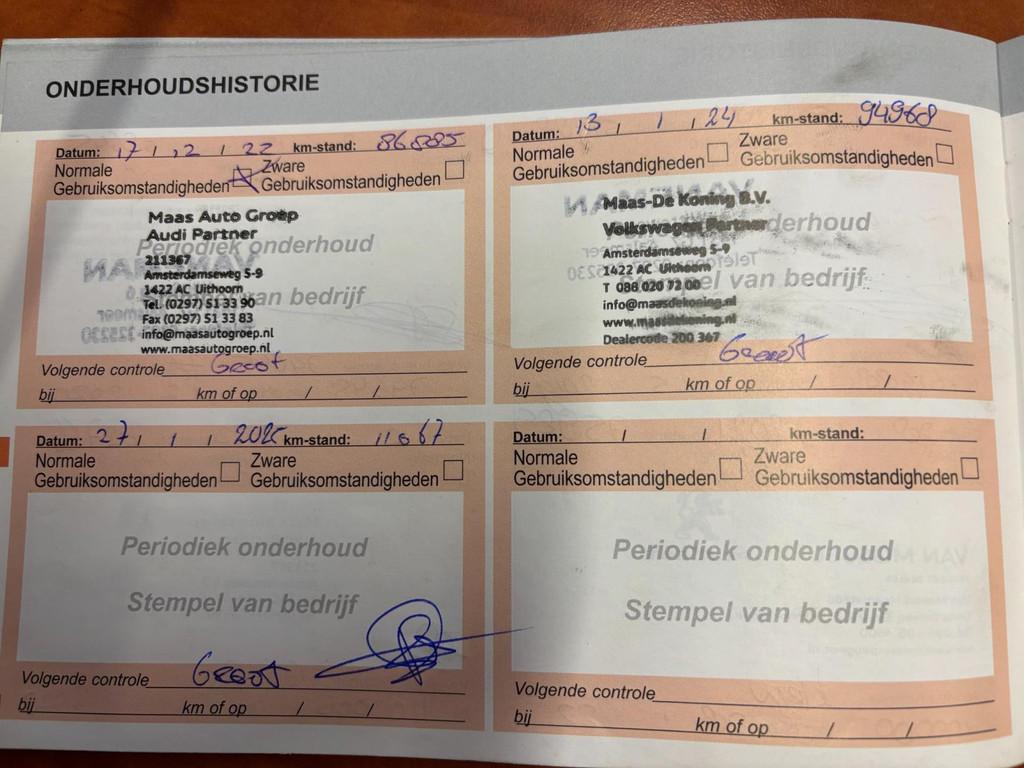 ONDERHOUDSHISTORIE
Datum: 17 / 12 / 22 km-stand: 86885
Normale
Gebruiksomstandigheden
Zware
Gebruiksomstandigheden
Maas Auto Groep
Audi Partner
Periodiek onderhoud
211367
Amsterdamseweg 5-9
1422 AC Uithoorn
van bedrijf
Tel. (0297) 51 33 90
Fax (0297) 51 33 83
info@maasautogroep.nl
www.maasautogroep.nl
Volgende controle Groot
bij km of op / /
Datum: 13 / 1 / 24 km-stand: 94968
Normale
Gebruiksomstandigheden
Zware
Gebruiksomstandigheden
Maas-De Koning B.V.
Volkswagen Partner
onderhoud
Amsterdamseweg 5-9
1422 AC Uithoorn
T 088 020 72 00
van bedrijf
info@maasdekoning.nl
www.maasdekoning.nl
Dealercode 200 367
Volgende controle Groot
bij km of op / /
Datum: 27 / 1 / 2025 km-stand:
Normale
Gebruiksomstandigheden
Zware
Gebruiksomstandigheden
Periodiek onderhoud
Stempel van bedrijf
Volgende controle Groot
bij km of op / /
Datum: / / km-stand:
Normale
Gebruiksomstandigheden
Zware
Gebruiksomstandigheden
Periodiek onderhoud
Stempel van bedrijf
Volgende controle
bij km of op / /